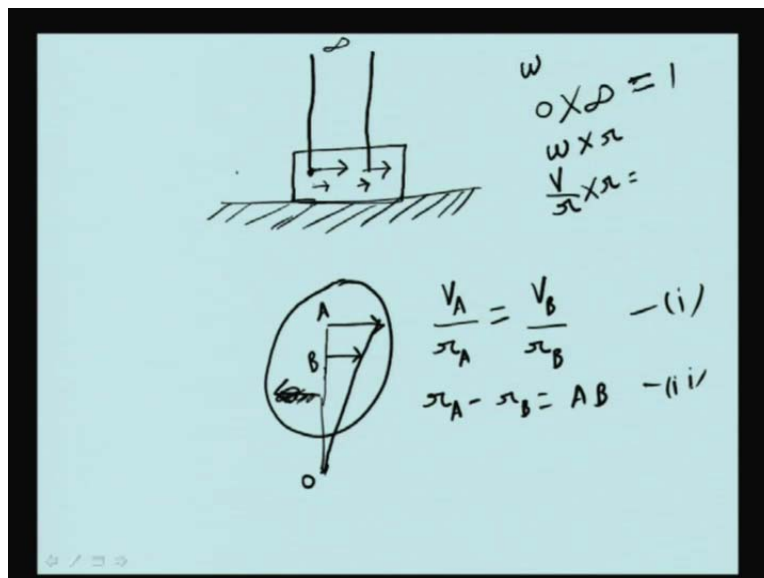 ∞
ω
0 × ∞ = 1
ω × r
V/r × r =
A
B
O
V_A/r_A = V_B/r_B —(i)
r_A - r_B = AB —(ii)